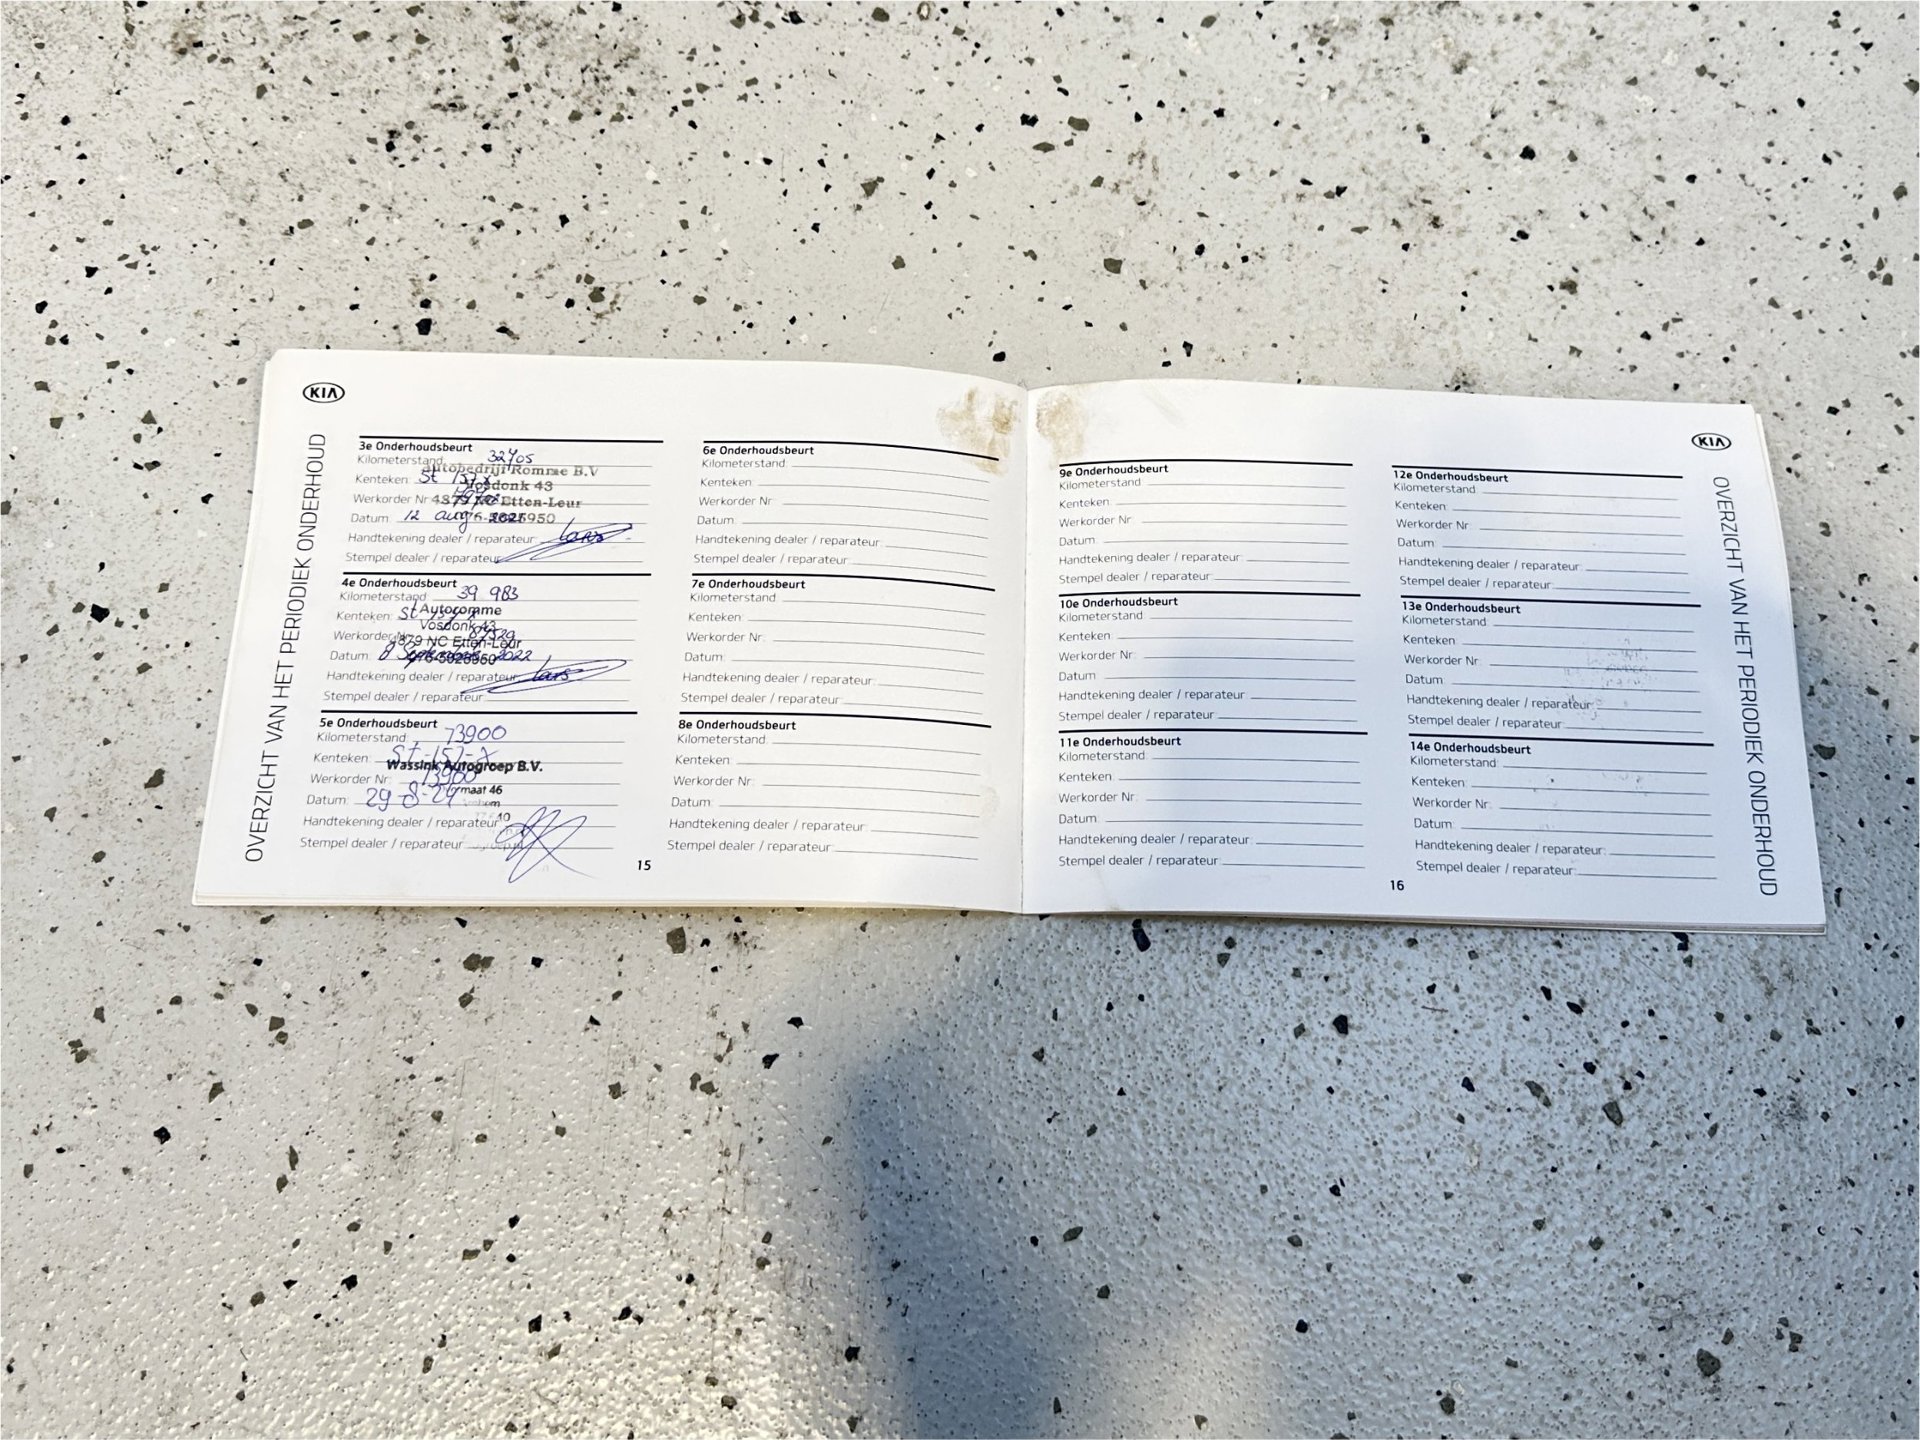 KIA
OVERZICHT VAN HET PERIODIEK ONDERHOUD
3e Onderhoudsbeurt
Kilometerstand: 32705
Autobedrijf Romme B.V
Kenteken: St 157 x
Vosdonk 43
Werkorder Nr
4879 NC Etten-Leur
Datum: 12 aug
Handtekening dealer / reparateur: Lars
Stempel dealer / reparateur:
4e Onderhoudsbeurt
Kilometerstand: 39 983
Autoromme
Kenteken: St
Vosdonk 43
Werkorder Nr: 87529
4879 NC Etten-Leur
Datum: 8 September 2022
076-5026950
Handtekening dealer / reparateur: Lars
Stempel dealer / reparateur:
5e Onderhoudsbeurt
Kilometerstand: 73900
Kenteken: St-157-X
Wassink Autogroep B.V.
Werkorder Nr: 13900
maat 46
Datum: 29-8-24
Handtekening dealer / reparateur:
Stempel dealer / reparateur:
6e Onderhoudsbeurt
Kilometerstand:
Kenteken:
Werkorder Nr:
Datum:
Handtekening dealer / reparateur:
Stempel dealer / reparateur:
7e Onderhoudsbeurt
Kilometerstand:
Kenteken:
Werkorder Nr:
Datum:
Handtekening dealer / reparateur:
Stempel dealer / reparateur:
8e Onderhoudsbeurt
Kilometerstand:
Kenteken:
Werkorder Nr:
Datum:
Handtekening dealer / reparateur:
Stempel dealer / reparateur:
15
KIA
OVERZICHT VAN HET PERIODIEK ONDERHOUD
9e Onderhoudsbeurt
Kilometerstand:
Kenteken:
Werkorder Nr:
Datum:
Handtekening dealer / reparateur:
Stempel dealer / reparateur:
10e Onderhoudsbeurt
Kilometerstand:
Kenteken:
Werkorder Nr:
Datum:
Handtekening dealer / reparateur:
Stempel dealer / reparateur:
11e Onderhoudsbeurt
Kilometerstand:
Kenteken:
Werkorder Nr:
Datum:
Handtekening dealer / reparateur:
Stempel dealer / reparateur:
12e Onderhoudsbeurt
Kilometerstand:
Kenteken:
Werkorder Nr:
Datum:
Handtekening dealer / reparateur:
Stempel dealer / reparateur:
13e Onderhoudsbeurt
Kilometerstand:
Kenteken:
Werkorder Nr:
Datum:
Handtekening dealer / reparateur:
Stempel dealer / reparateur:
14e Onderhoudsbeurt
Kilometerstand:
Kenteken:
Werkorder Nr:
Datum:
Handtekening dealer / reparateur:
Stempel dealer / reparateur:
16